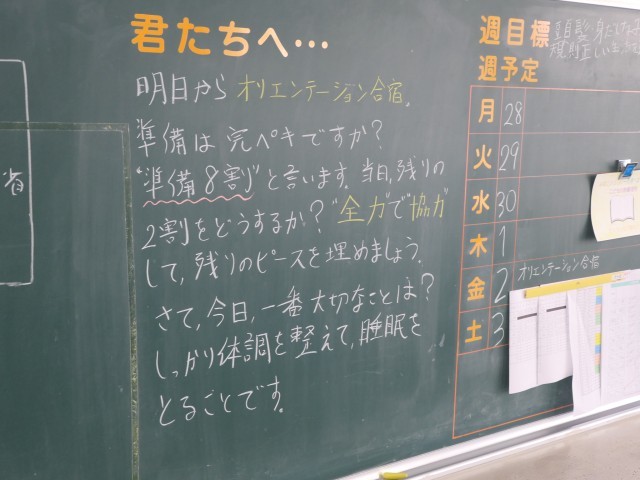 君たちへ…
明日から オリエンテーション合宿。
準備は 完ペキですか？
"準備8割" と言います。当日、残りの
2割をどうするか？ "全力"で"協力"
して、残りのピースを埋めましょう。
さて、今日、一番大切なことは？
しっかり体調を整えて、睡眠を
とることです。
週目標
頭髪 身だしなみ
規則正しい
週予定
月 28
火 29
水 30
木 1
金 2 オリエンテーション合宿
土 3
省